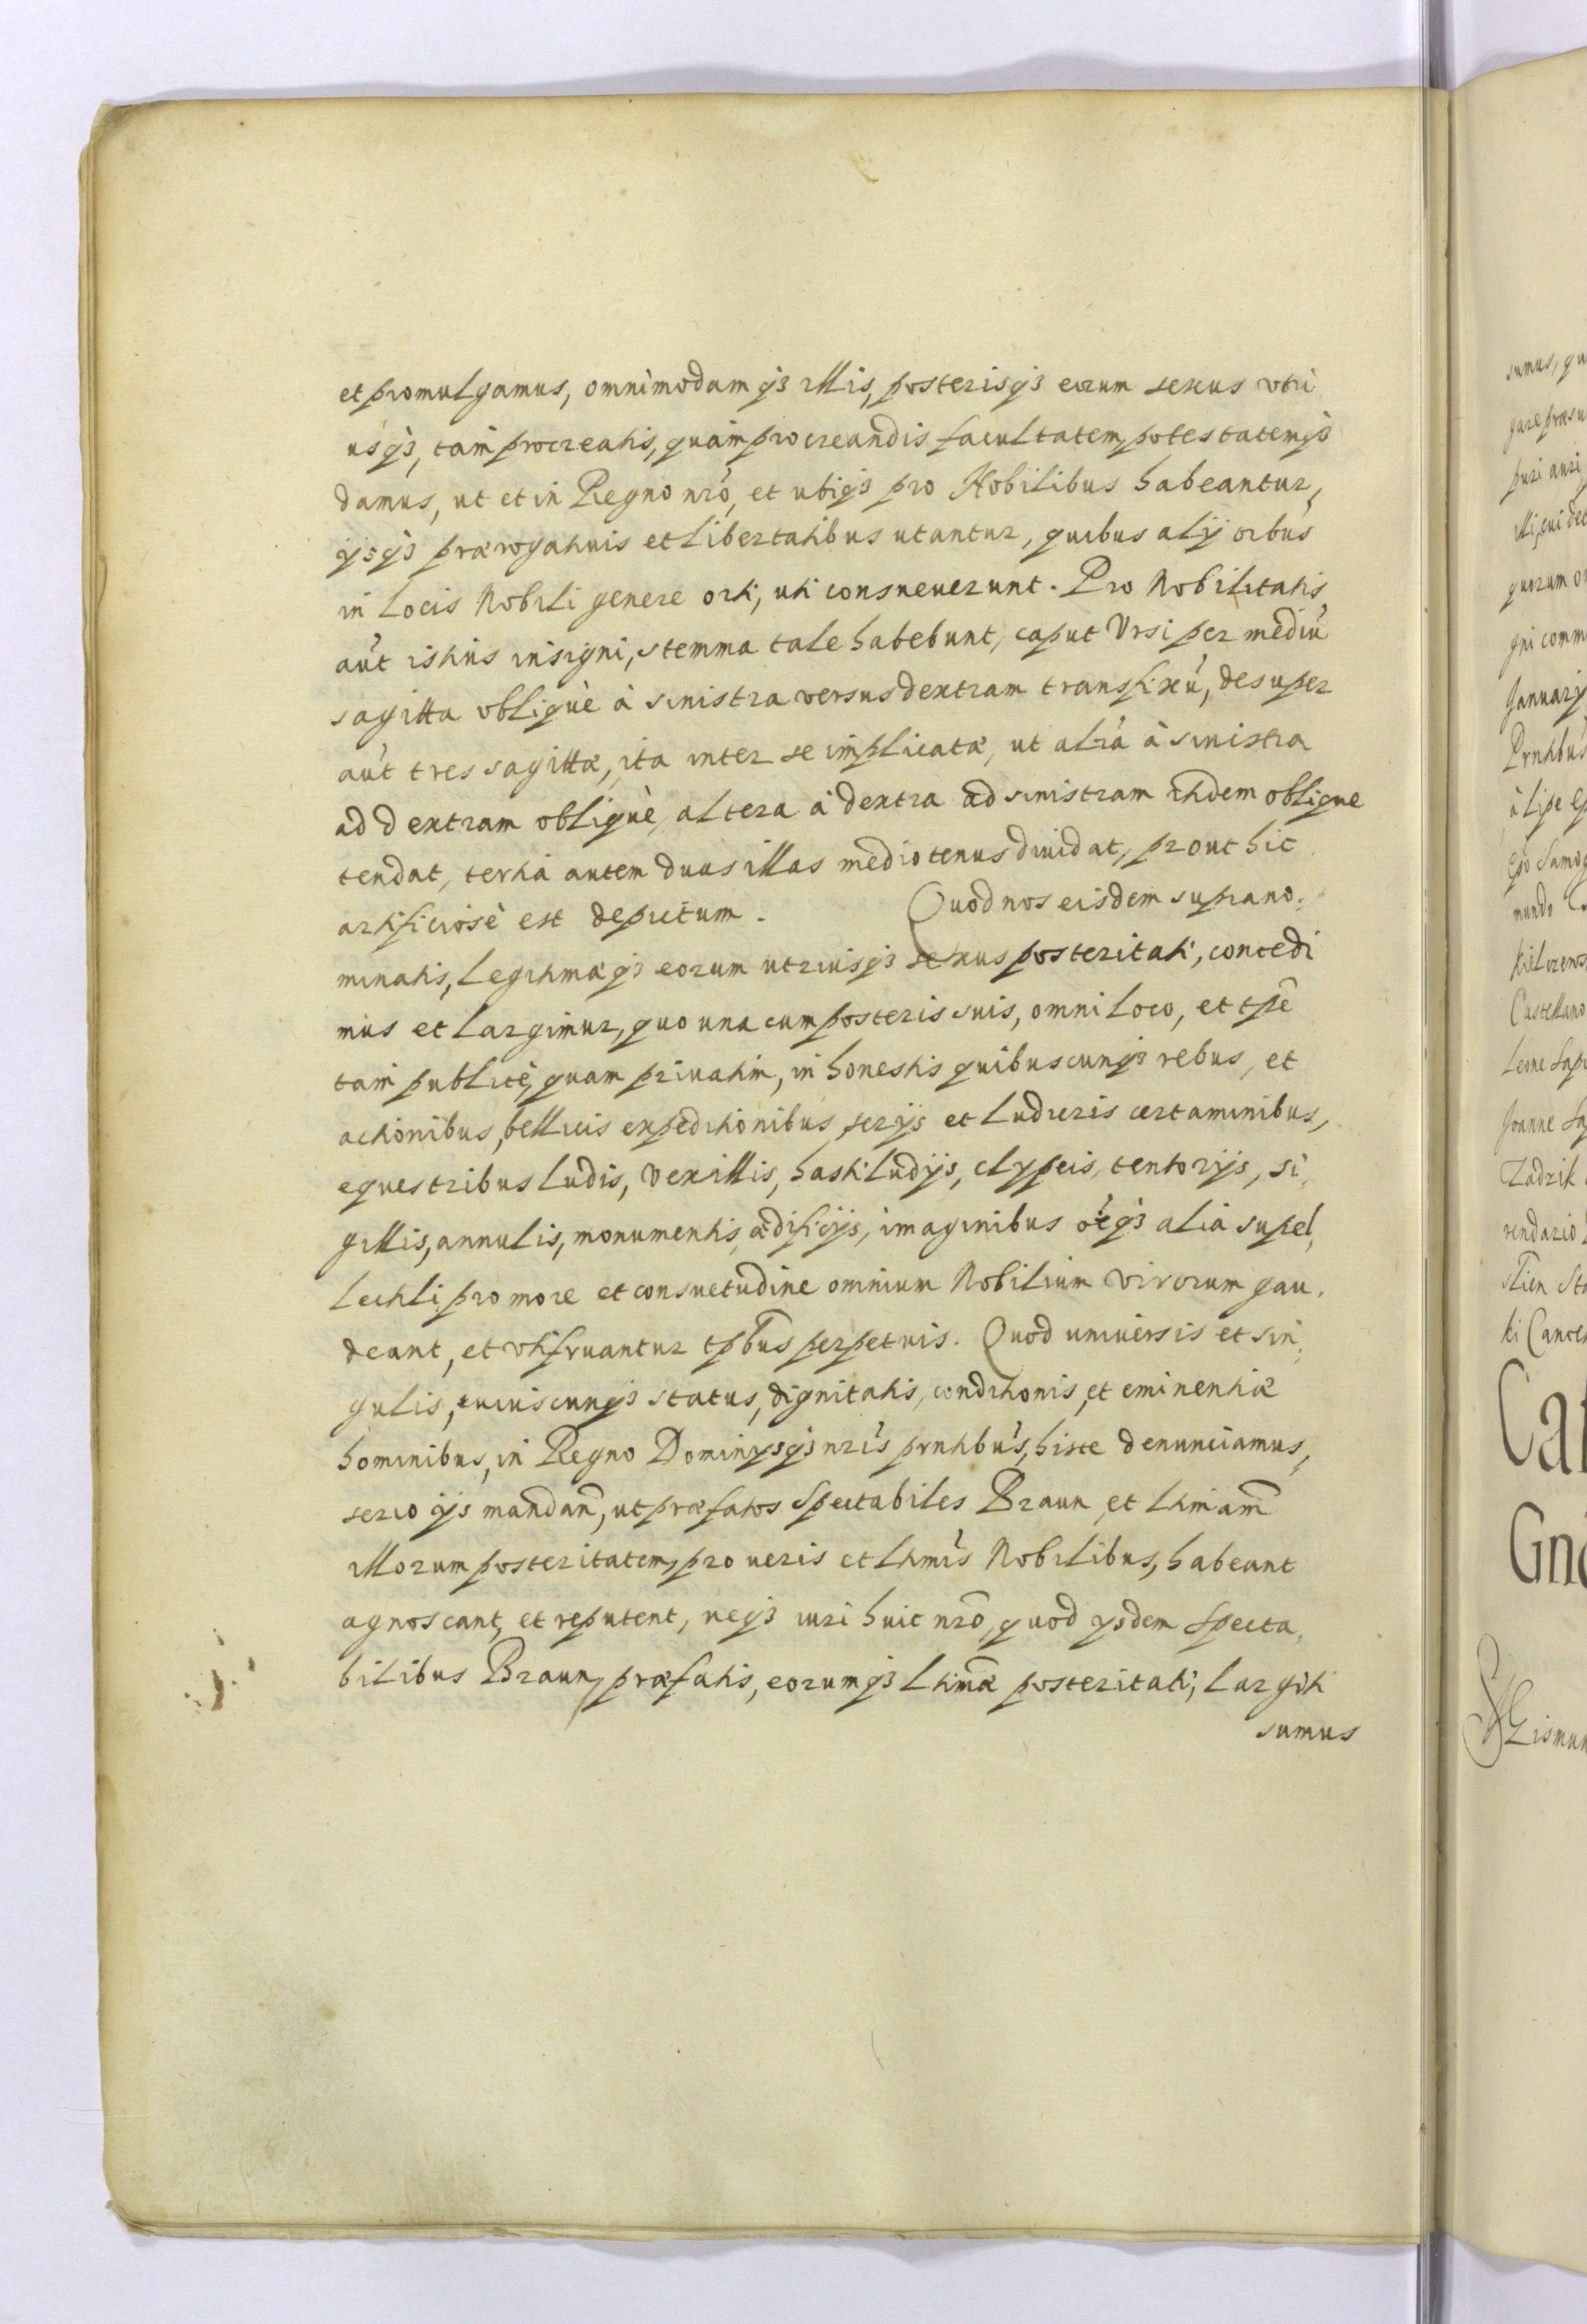 et promulgamus, omnimodamqȝ illis, posterisqȝ eorum sexus vtri
usqȝ, tam procreatis, quàm procreandis facultatem, potestatemqȝ
damus, ut et in Regno nrō, et ubiqȝ pro Nobilibus habeantur,
ijsqȝ prærogatiuis et libertatibus utantur, quibus alij oībus
in locis Nobili genere orti, uti consueuerunt. Pro Nobilitatis
aūt istius insigni, stemma tale habebunt, caput Vrsi per mediū
sagitta obliquè à sinistra versus dextram transfixū, desuper
aūt tres sagittæ, ita inter se implicatæ, ut
ad dextram obliquè, altera à dextra ad sinistram itidem oblique
tendat, tertia autem duas illas mediotenus diuidat, prout hic
artificiosè est depictum. Quod nos eisdem supranо,
minatis, legitimæqȝ eorum utriusqȝ sexus posteritati, concedi
mus et largimur, quo una cum posteris suis, omni loco, et tp̄e
tam publicè, quam priuatim, in honestis quibuscunqȝ rebus, et
actionibus, bellicis expeditionibus, serijs et ludicris certaminibus,
equestribus ludis, vexillis, hastiludijs, clypeis, tentorijs, si,
gillis, annulis, monumentis, ædificijs, imaginibus oēqȝ alia supel,
lectili pro more et consuetudine omnium Nobilium virorum gau,
deant, et vtifruantur tp̄bus perpetuis. Quod uniuersis et sin,
gulis, cuiuscunqȝ status, dignitatis, conditionis, et eminentiæ
hominibus, in Regno Dominijsqȝ nrīs prntibūs, hisce denunciamus,
serio ijs mandan̄, ut præfatos Spectabiles Braun et lhmam̄
illorum posteritatem, pro ueris et lhmīs Nobilibus, habeant
agnoscant, et reputent, neqȝ iuri huic nrō, quod ijsdem Specta,
bilibus Braun, præfatis, eorumqȝ lhmǣ posteritati, largiti
sumus